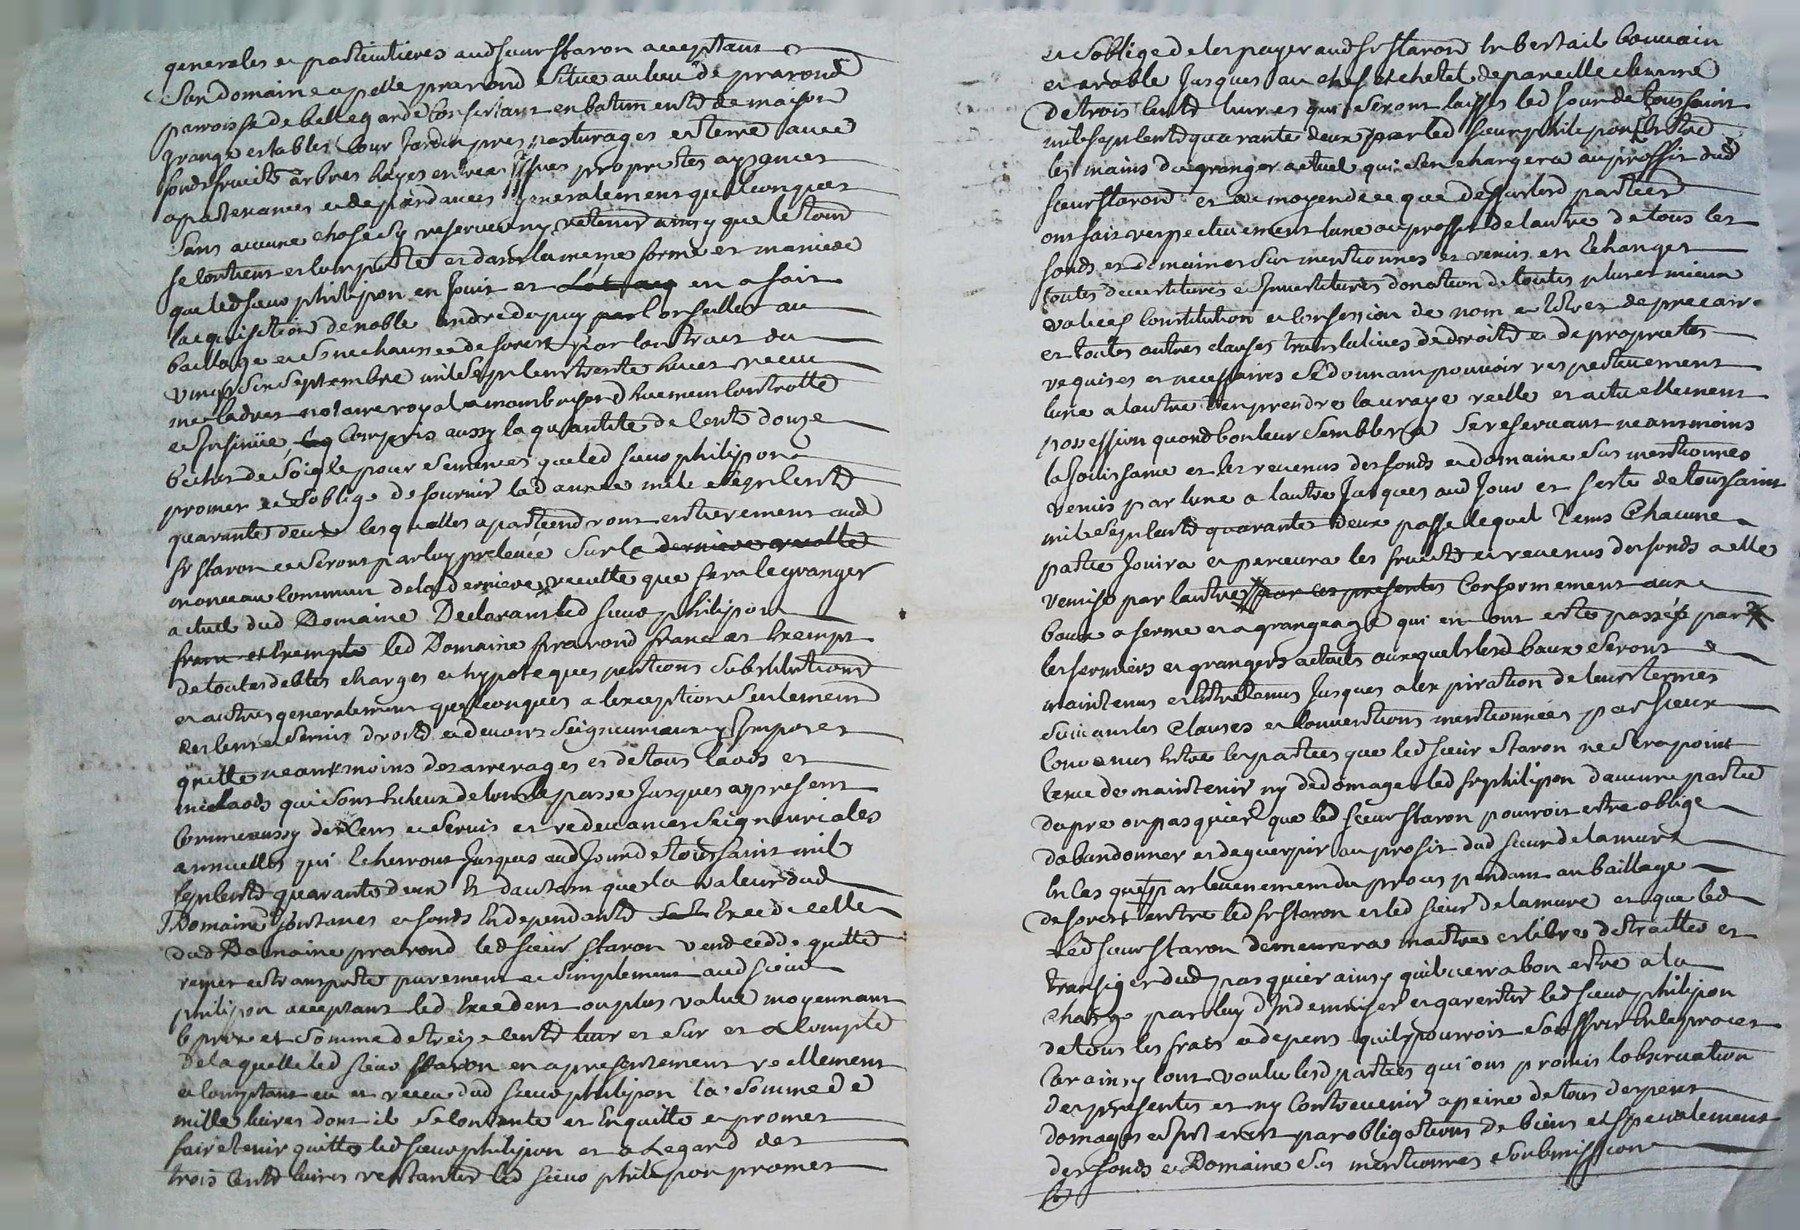 generales et particulieres aud sieur staron acceptant
Son domaine apellé prarond situé au lieu de prarond
parroisse de bellegarde Consistant en batimentz de maison
grange estables Cour Jardin prés pasturages et terre avec
fonds fruitz arbres hayes entrées issues proprietes aysances
apartenances et dependances generalement quelconques
Sans aucune chose sy reserver ny retenir ainsy que le tout
se contient et comporte et dans la meme forme et maniere
que led sieur philipon en Jouit et en a fait
lacquisition de noble andre dupuy Conseiller au
bailliage et senechaussee de forest par Contract du
vingt Six Septembre mil Sept Cent trente huict receu
me notaire royal a montbrison duement Controllé
et Insinüé, Compris aussy la quantité de Centz douze
bichets de Soigle pour Semences que led sieur philipon
promet et Soblige de fournir lad année mil Sept Centz
quarante deux lesquelles apartiendront entierement aud
sr staron et Seront par luy prelevée Sur la derniere recolte
monceau Commun de la derniere recolte que fera le granger
actuel dud Domaine Declarant led sieur philipon
franc et Exempte led Domaine prarond franc et Exempt
de toutes debtes charges et hypoteques pentions Substitutions
et autres generalement quelconques a lexception Seulement
des Cens et Servis droitz et devoirs Seigneuriaux y Imposes
quitte neantmoins des arrerages et de tous laods et
milaods qui Sont Echeux de tout le passe Jusques a present
Comme aussy des Cens et Servis et redevances Seigneuriales
annuelles qui Echerront Jusques aud Jour de toussaint mil
Sept Centz quarante deux Et dautant que la valeur dud
Domaine et fonds En dependantz Excede celle
dud Domaine prarond led sieur staron vend cedde quitte
remet et transporte purement et Simplement aud sieur
philipon acceptant led Excedent ou plus value moyennant
le prix et Somme de treize centz et Sur et a Compte
de laquelle led sieur staron en a presentement reellement
et Comptant eu et receu dud sieur philipon la Somme de
mille livres dont il Se Contente et En quitte et promet
faire tenir quitte led sieur philipon et a Legard des
trois Centz livres restantes led sieur philipon promet
et Soblige de les payer aud sr staron En bestail bouvain
et arable Jusques au chef et chetel de pareille Somme
de trois Centz livres qui Seront laissés led Jour de toussaint
mil sept Centz quarante deux par led sieur philipon Entre
les mains du granger actuel qui Sen chargera au proffit dud
sieur staron et au moyen de ce que dessus lesd parties
ont fait respectivement lune au proffit de lautre de tous les
fonds et domaines Sus mentionnes et remis en Echanges
toutes devestitures et Investitures donation de toutes plus et mieux
values Constitution et Concession de nom et titres de precaire
et toutes autres clauses translatives de droitz et de proprietes
requises et necessaires Se donnant pouvoir respectivement
lune a lautre den prendre la vraye reelle et actuellement
possession quand bon leur Semblera Se reservant neantmoins
la Jouissance et les revenus des fonds et domaine Sus mentionnes
remis par lune a lautre Jusques aud Jour et feste de toussaint
mil Sept Centz quarante deux passe lequel tems Chacune
partie Jouira et percevra les fruitz et revenus des fonds a elle
remise par lautre par ces presentes Conformement aux
baux a ferme et a grangeage qui en ont este passés par
les fermiers et grangers actuels auxquels lesd baux Seront
maintenus et Entretenus Jusques a lexpiration de leurs termes
Suivant les Clauses et Conventions mentionnées par Iceux
Convenus Entre les parties que led sieur staron ne Sera point
tenu de maintenir ny dedomager led sr philipon daucune partie
du pre ou pasquier que led sieur staron pourroit estre oblige
dabandonner et deguerpir au profit dud sieur de la mure
En Cas que par levenement du proces pendant au bailliage
de forest entre led sr staron et led sieur de la mure et que led
led sieur staron demeurera maitre et libre de traitter et
transiger dud pasquier ainsy quil verra bon estre a la
charge par luy dIndemniser et garentir led sieur philipon
de tous les frais et depens quil pourroit Souffrir En le proces
Car ainsy lont voulu lesd parties qui ont promis lobservation
des presentes et ny Contrevenir a peine de tous depens
domages et Intz par obligations de biens et Specialement
des fonds et Domaine Sus mentionnes Soubmission